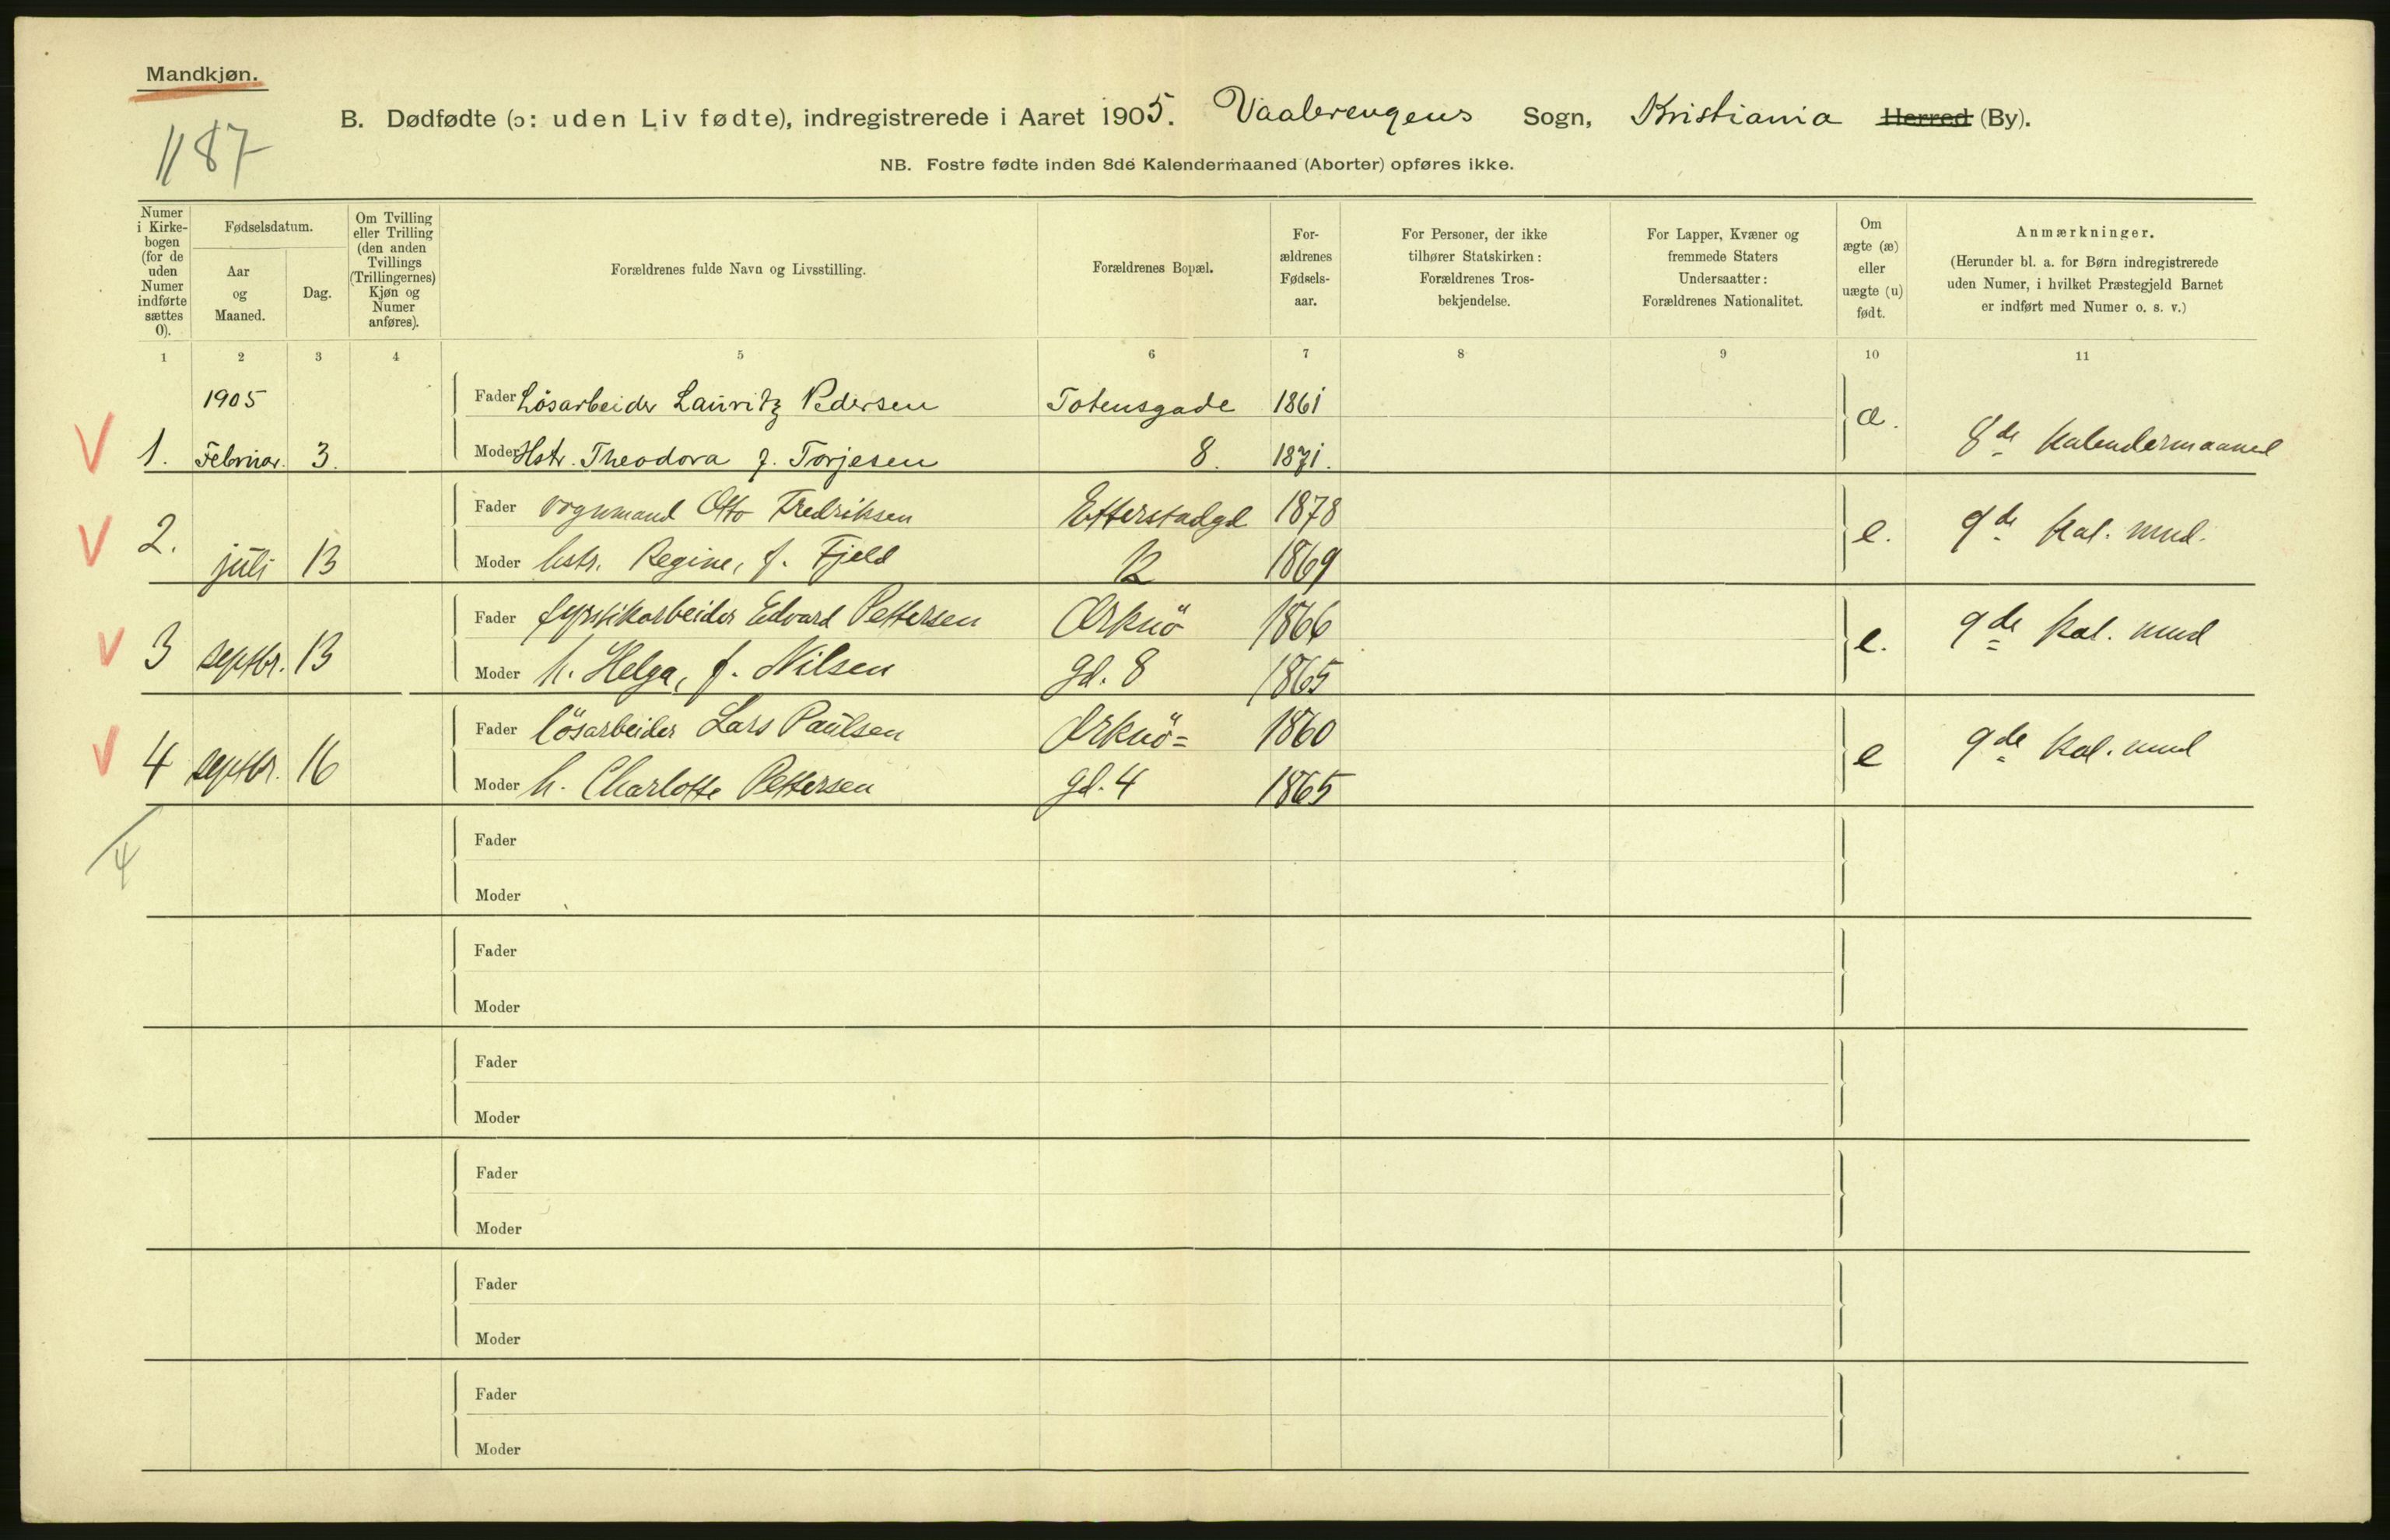 Mandkjøn.
1187
B. Dødfødte (ɔ: uden Liv fødte), indregistrerede i Aaret 1905. Vaalerengens Sogn, Kristiania Herred (By).
NB. Fostre fødte inden 8de Kalendermaaned (Aborter) opføres ikke.
Numer i Kirkebogen (for de uden Numer indførte sættes 0).
Fødselsdatum.
Aar og Maaned.
Dag.
Om Tvilling eller Trilling (den anden Tvillings (Trillingernes) Kjøn og Numer anføres).
Forældrenes fulde Navn og Livsstilling.
Forældrenes Bopæl.
For-ældrenes Fødsels-aar.
For Personer, der ikke tilhører Statskirken: Forældrenes Tros-bekjendelse.
For Lapper, Kvæner og fremmede Staters Undersaatter: Forældrenes Nationalitet.
Om ægte (æ) eller uægte (u) født.
Anmærkninger.
(Herunder bl. a. for Børn indregistrerede uden Numer, i hvilket Præstegjeld Barnet er indført med Numer o. s. v.)
1 2 3 4 5 6 7 8 9 10 11
1905 Fader Løsarbeider Lauritz Pedersen Totensgade 1861 æ.
1. Februar. 3. Moder Hstr. Theodora f. Torjesen 8. 1871. 8de Kalendermaaned
Fader vognmand Otto Fredriksen Etterstadgd 1878
2. juli 13 Moder hstr. Regine, f. Fjeld 12 1869 e. 9de Kal. mnd.
Fader fyrstikarbeider Edvard Pettersen Ørknö 1866
3 septbr. 13 Moder h. Helga, f. Nilsen gd. 8 1865 e. 9de Kal. mnd
Fader lösarbeider Lars Paulsen Ørknö= 1860
4 septbr. 16 Moder h. Charlotte Pettersen gd. 4 1865 e 9de Kal. mnd
4
Fader
Moder
Fader
Moder
Fader
Moder
Fader
Moder
Fader
Moder
Fader
Moder